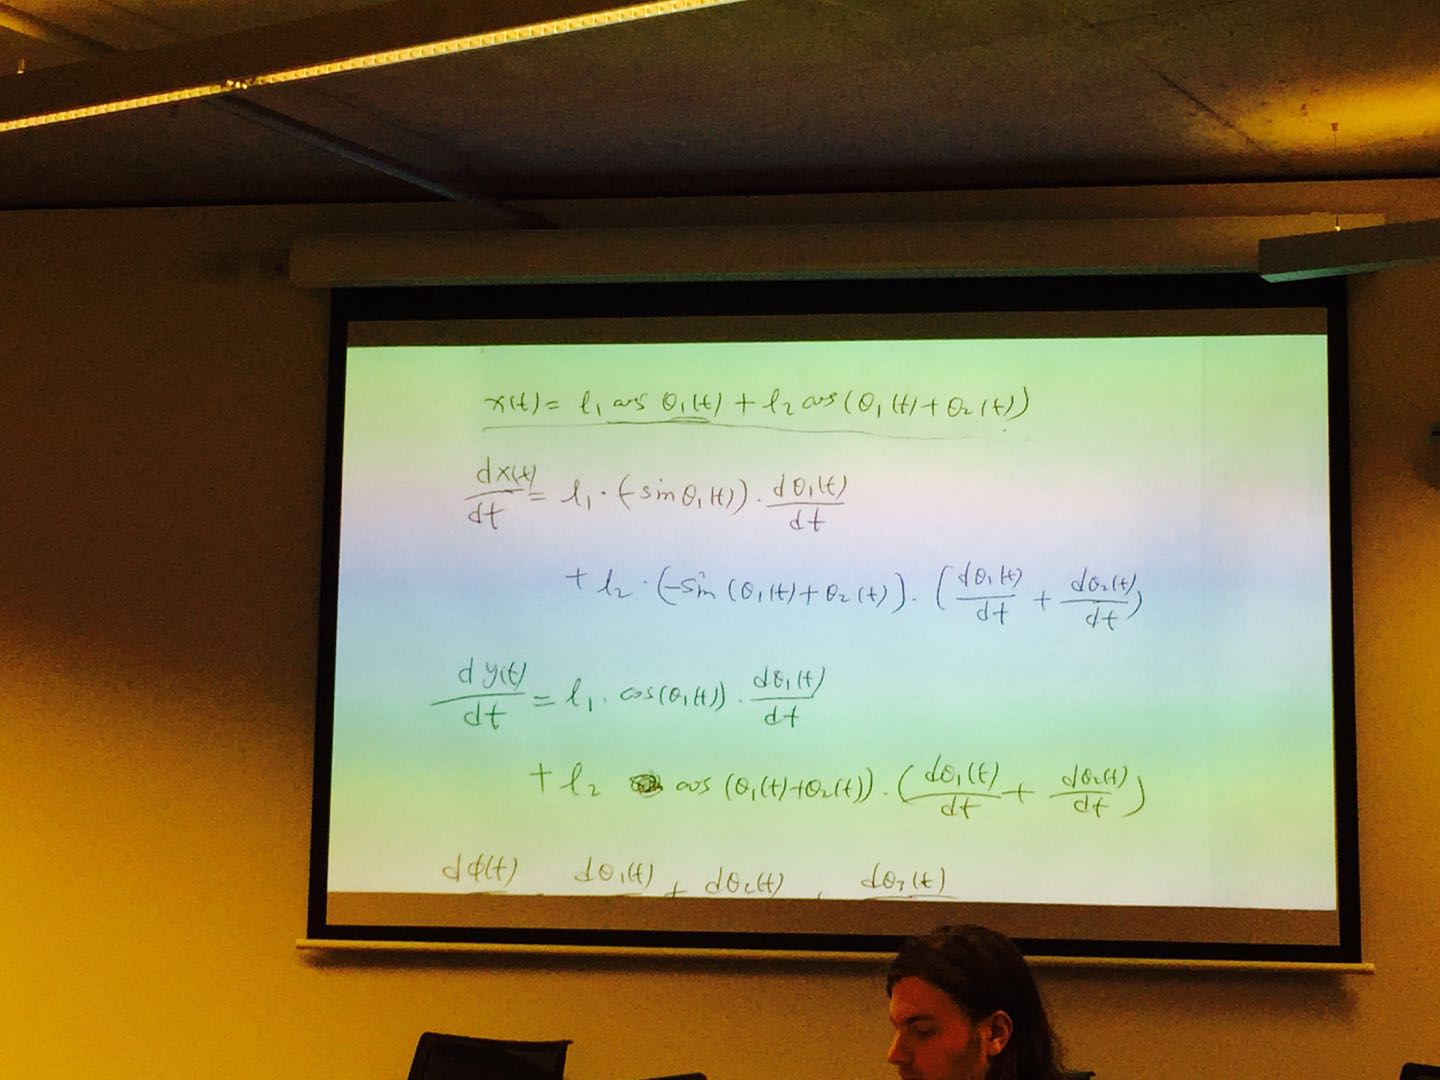 x(t) = l₁ cos θ₁(t) + l₂ cos (θ₁(t) + θ₂(t))
dx(t)/dt = l₁ · (-sin θ₁(t)) · dθ₁(t)/dt
+ l₂ · (-sin (θ₁(t) + θ₂(t)) · (dθ₁(t)/dt + dθ₂(t)/dt)
dy(t)/dt = l₁ · cos(θ₁(t)) · dθ₁(t)/dt
+ l₂ cos (θ₁(t) + θ₂(t)) · (dθ₁(t)/dt + dθ₂(t)/dt)
dϕ(t) dθ₁(t) + dθ₂(t) dθ₃(t)